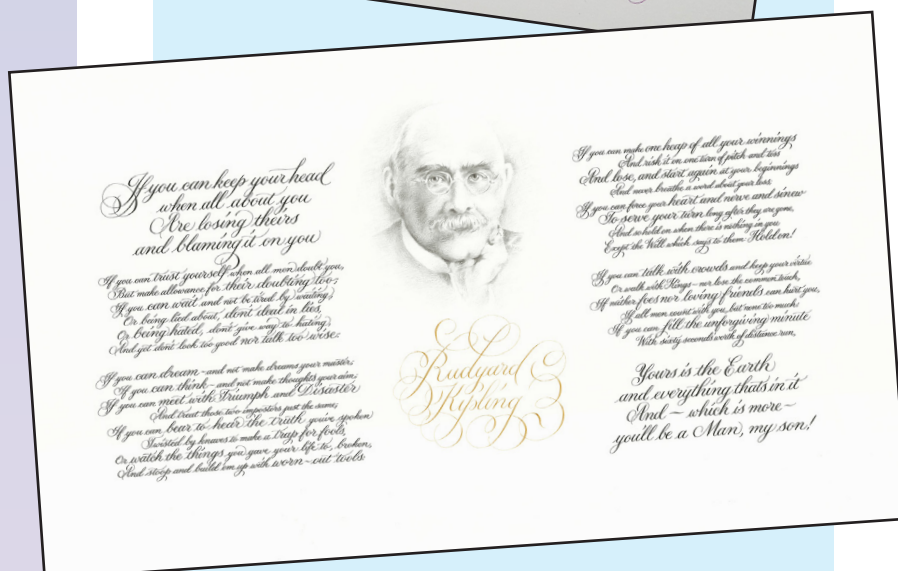 If you can keep your head
when all about you
Are losing theirs
and blaming it on you
If you can trust yourself when all men doubt you,
But make allowance for their doubting too;
If you can wait and not be tired by waiting,
Or being lied about, don't deal in lies,
Or being hated, don't give way to hating,
And yet don't look too good nor talk too wise:
If you can dream - and not make dreams your master;
If you can think - and not make thoughts your aim;
If you can meet with Triumph and Disaster
And treat those two impostors just the same;
If you can bear to hear the truth you've spoken
Twisted by knaves to make a trap for fools,
Or watch the things you gave your life to, broken,
And stoop and build 'em up with worn-out tools
Rudyard
Kipling
If you can make one heap of all your winnings
And risk it on one turn of pitch and toss
And lose, and start again at your beginnings
And never breathe a word about your loss
If you can force your heart and nerve and sinew
To serve your turn long after they are gone,
And so hold on when there is nothing in you
Except the Will which says to them Hold on!
If you can talk with crowds and keep your virtue
Or walk with Kings - nor lose the common touch,
If neither foes nor loving friends can hurt you,
If all men count with you, but none too much:
If you can fill the unforgiving minute
With sixty seconds worth of distance run,
Yours is the Earth
and everything that's in it
And - which is more -
you'll be a Man, my son!